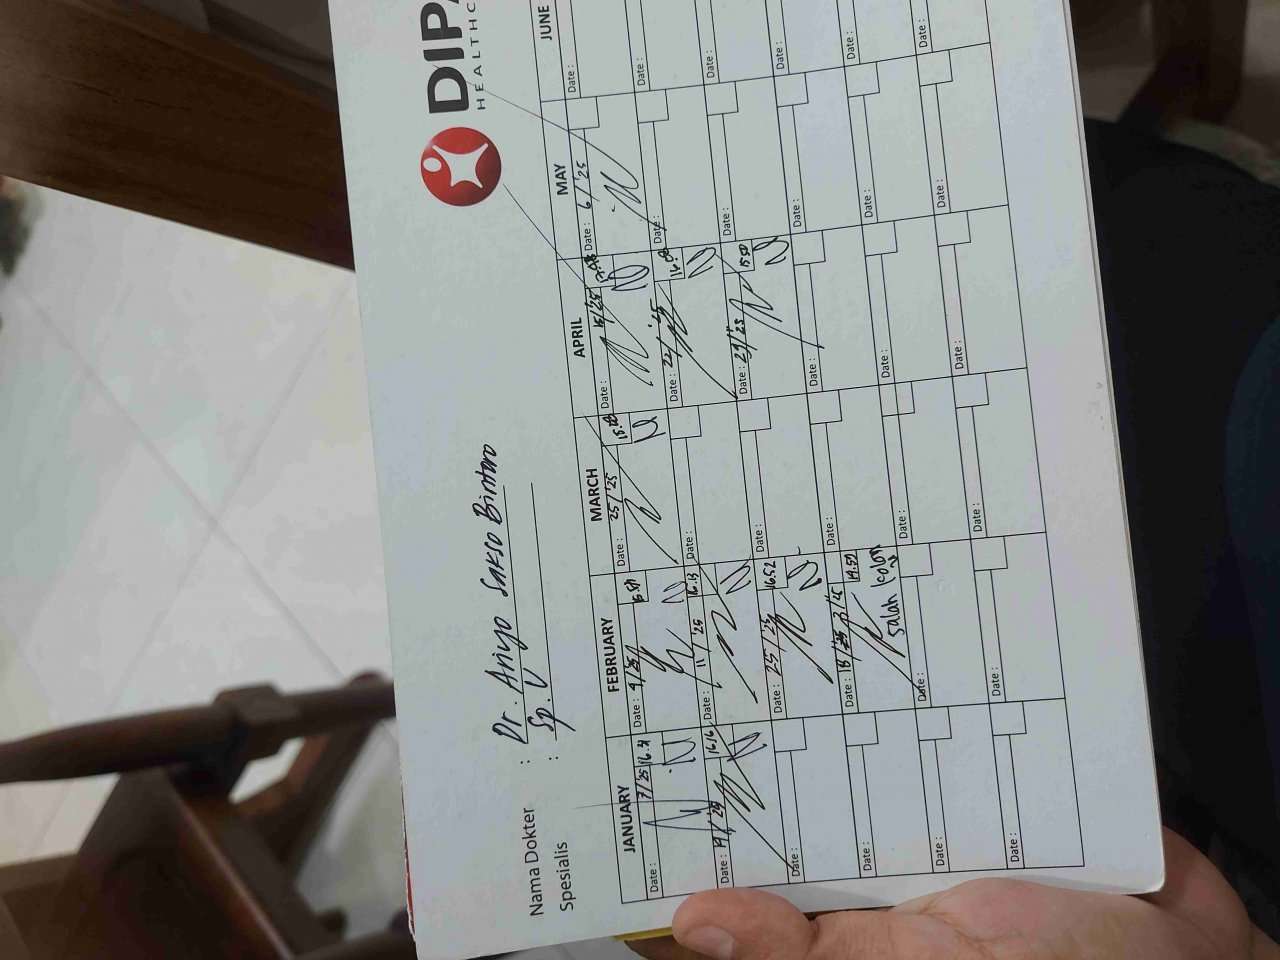 DIPA
HEALTHC
Nama Dokter : Dr. Ariyo Sakso Bintoro
Spesialis : Sp. V
JANUARY FEBRUARY MARCH APRIL MAY JUNE
Date : 7/25 Date : 4/25 Date : 25/'25 15.00 Date : 15/'25 Date : 6/'25 Date :
Date : Date : 11/25 16.13 Date : Date : 22/'25 Date : Date :
Date : Date : 25/25 16.52 Date : Date : 29/25 15.50 Date : Date :
Date : Date : 18/25 14.59 Date : Date : Date : Date :
salah kolom
Date : Date : Date : Date : Date : Date :
Date : Date : Date : Date : Date : Date :